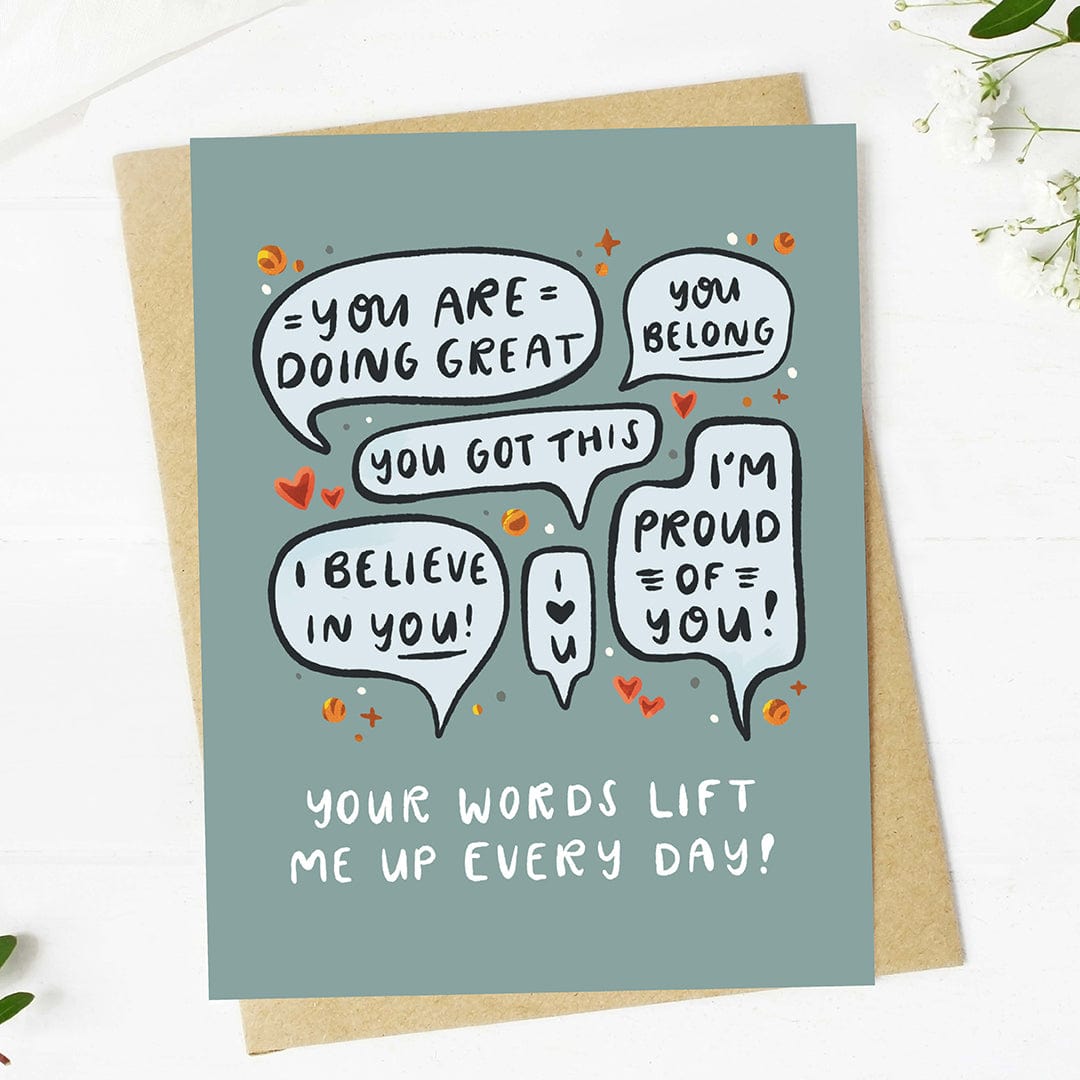 =YOU ARE=
DOING GREAT
YOU
BELONG
YOU GOT THIS
I'M
PROUD
OF
YOU!
I BELIEVE
IN YOU!
I
♥
U
YOUR WORDS LIFT
ME UP EVERY DAY!